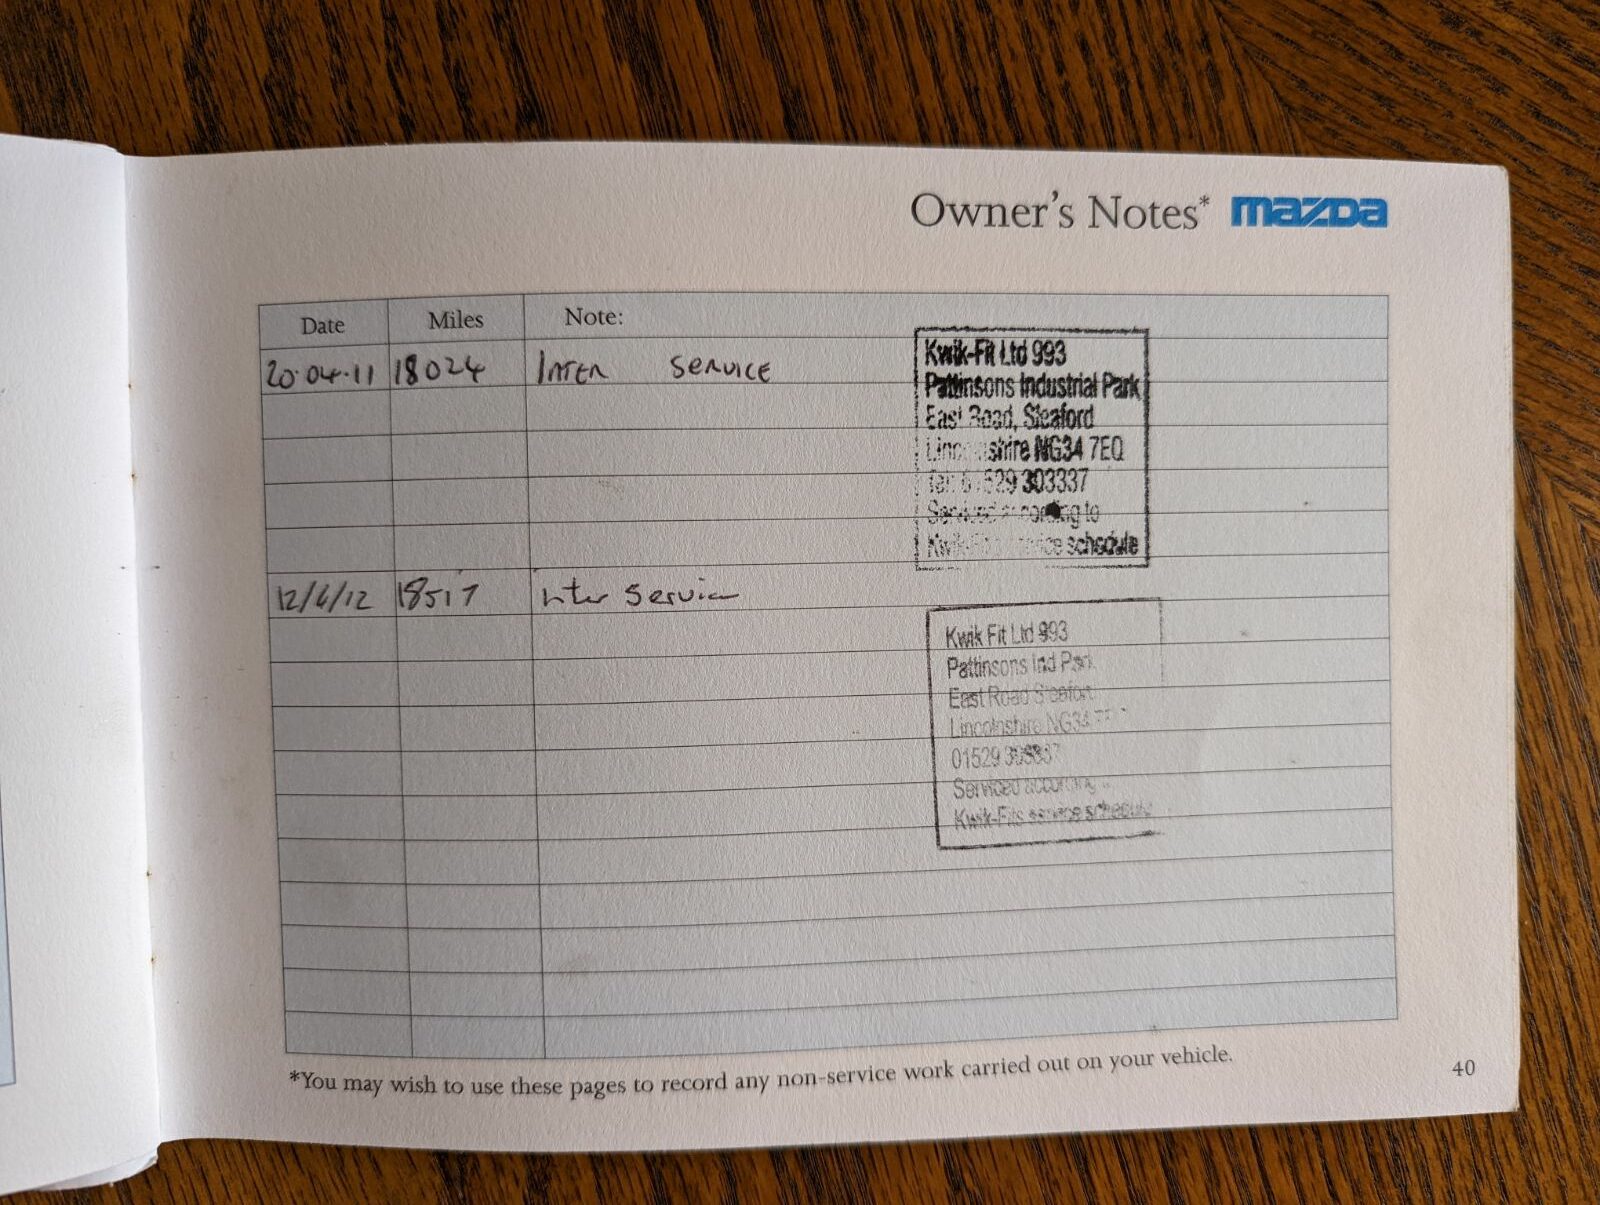 Owner's Notes* mazda
Date Miles Note:
20.04.11 18024 INTER SERVICE
Kwik-Fit Ltd 993
Pattinsons Industrial Park
East Road, Sleaford
Lincolnshire NG34 7EQ
Tel: 01529 303337
Serviced according to
Kwik-Fits service schedule
12/6/12 18517 Inter Service
Kwik Fit Ltd 993
Pattinsons Ind Park
East Road Sleaford
Lincolnshire NG34
01529 303337
Serviced according
Kwik-Fits service schedule
*You may wish to use these pages to record any non-service work carried out on your vehicle.
40